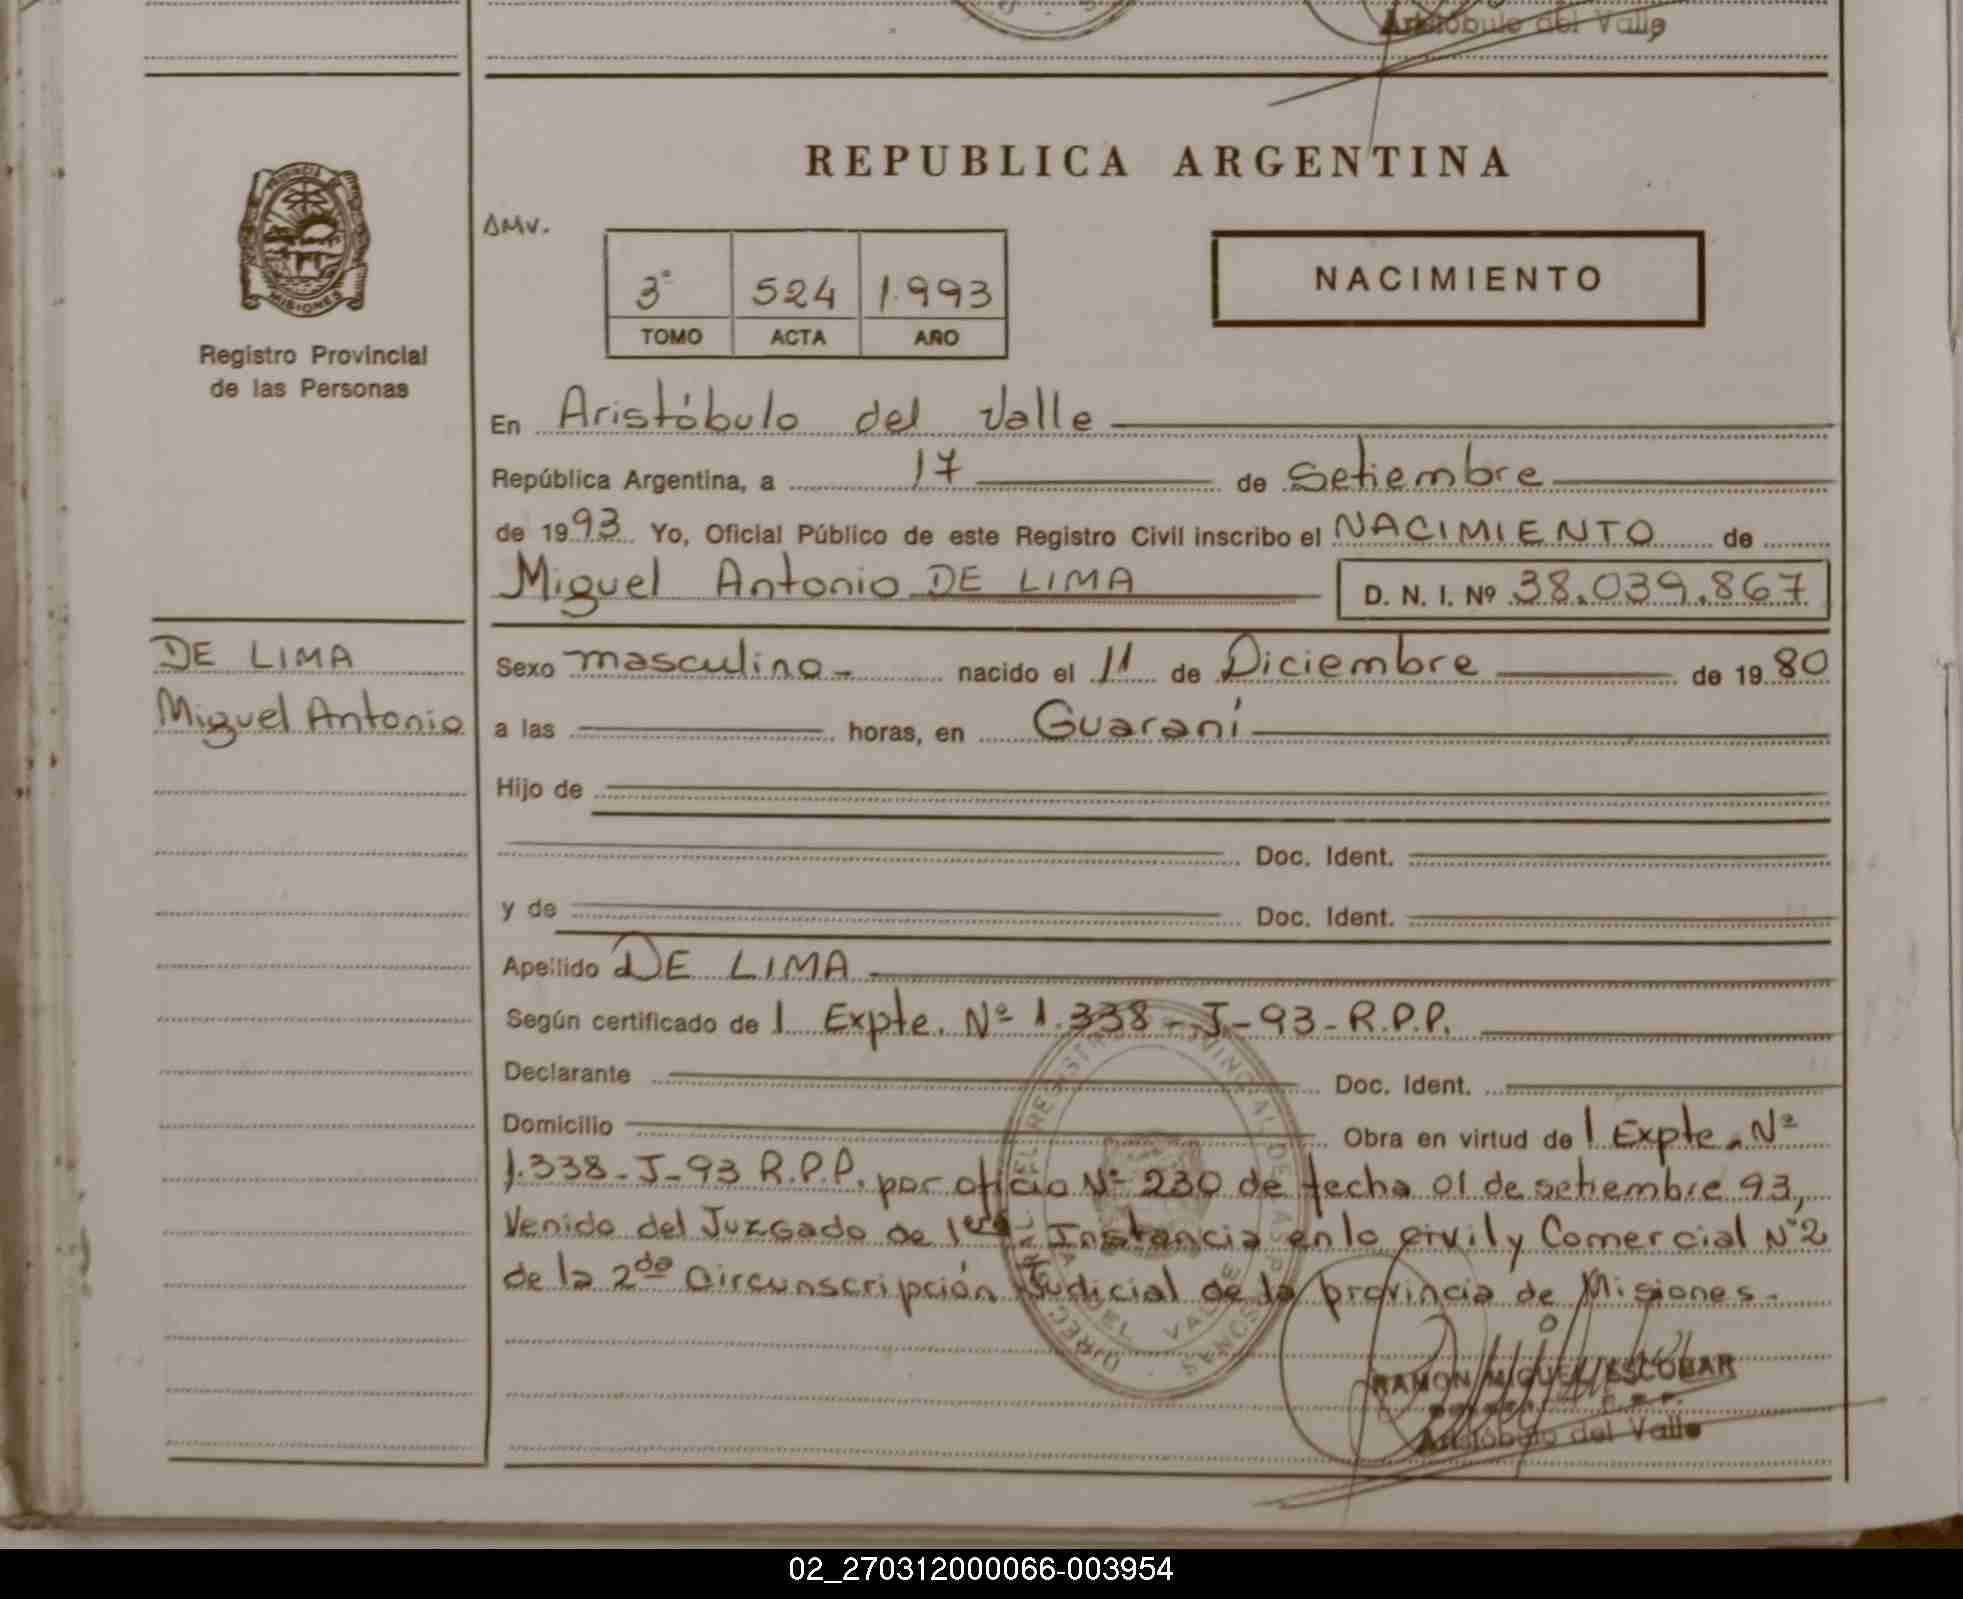 Aristóbulo del Valle
REPUBLICA ARGENTINA
PROVINCIA DE
MISIONES
Registro Provincial
de las Personas
AMV.
3° 524 1.993
TOMO ACTA AÑO
NACIMIENTO
En Aristóbulo del Valle
República Argentina, a 17 de Setiembre
de 1993 Yo, Oficial Público de este Registro Civil inscribo el NACIMIENTO de
Miguel Antonio DE LIMA D. N. I. Nº 38.039.867
DE LIMA
Miguel Antonio
Sexo masculino nacido el 11 de Diciembre de 1980
a las horas, en Guaraní
Hijo de
Doc. Ident.
y de Doc. Ident.
Apellido DE LIMA
Según certificado de 1 Expte. Nº 1.338-J-93-R.P.P.
Declarante Doc. Ident.
Domicilio Obra en virtud de 1 Expte. Nº
1.338-J-93 R.P.P. por oficio Nº 230 de fecha 01 de setiembre 93,
Venido del Juzgado de 1era Instancia en lo civil y Comercial Nº2
de la 2da Circunscripción Judicial de la provincia de Misiones.
RAMON MIGUEL ESCOBAR
Aristóbulo del Valle
02_270312000066-003954